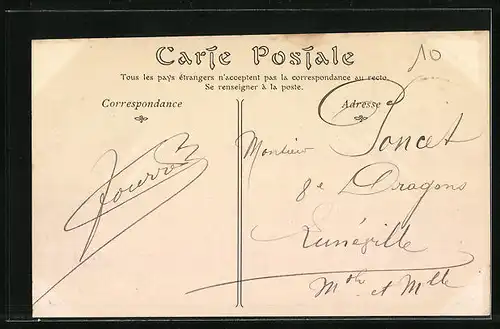 Carte Postale
10
Tous les pays étrangers n'acceptent pas la correspondance au recto.
Se renseigner à la poste.
Correspondance
Adresse
Monsieur Poncet
8e Dragons
Lunéville
Mthe et Mlle